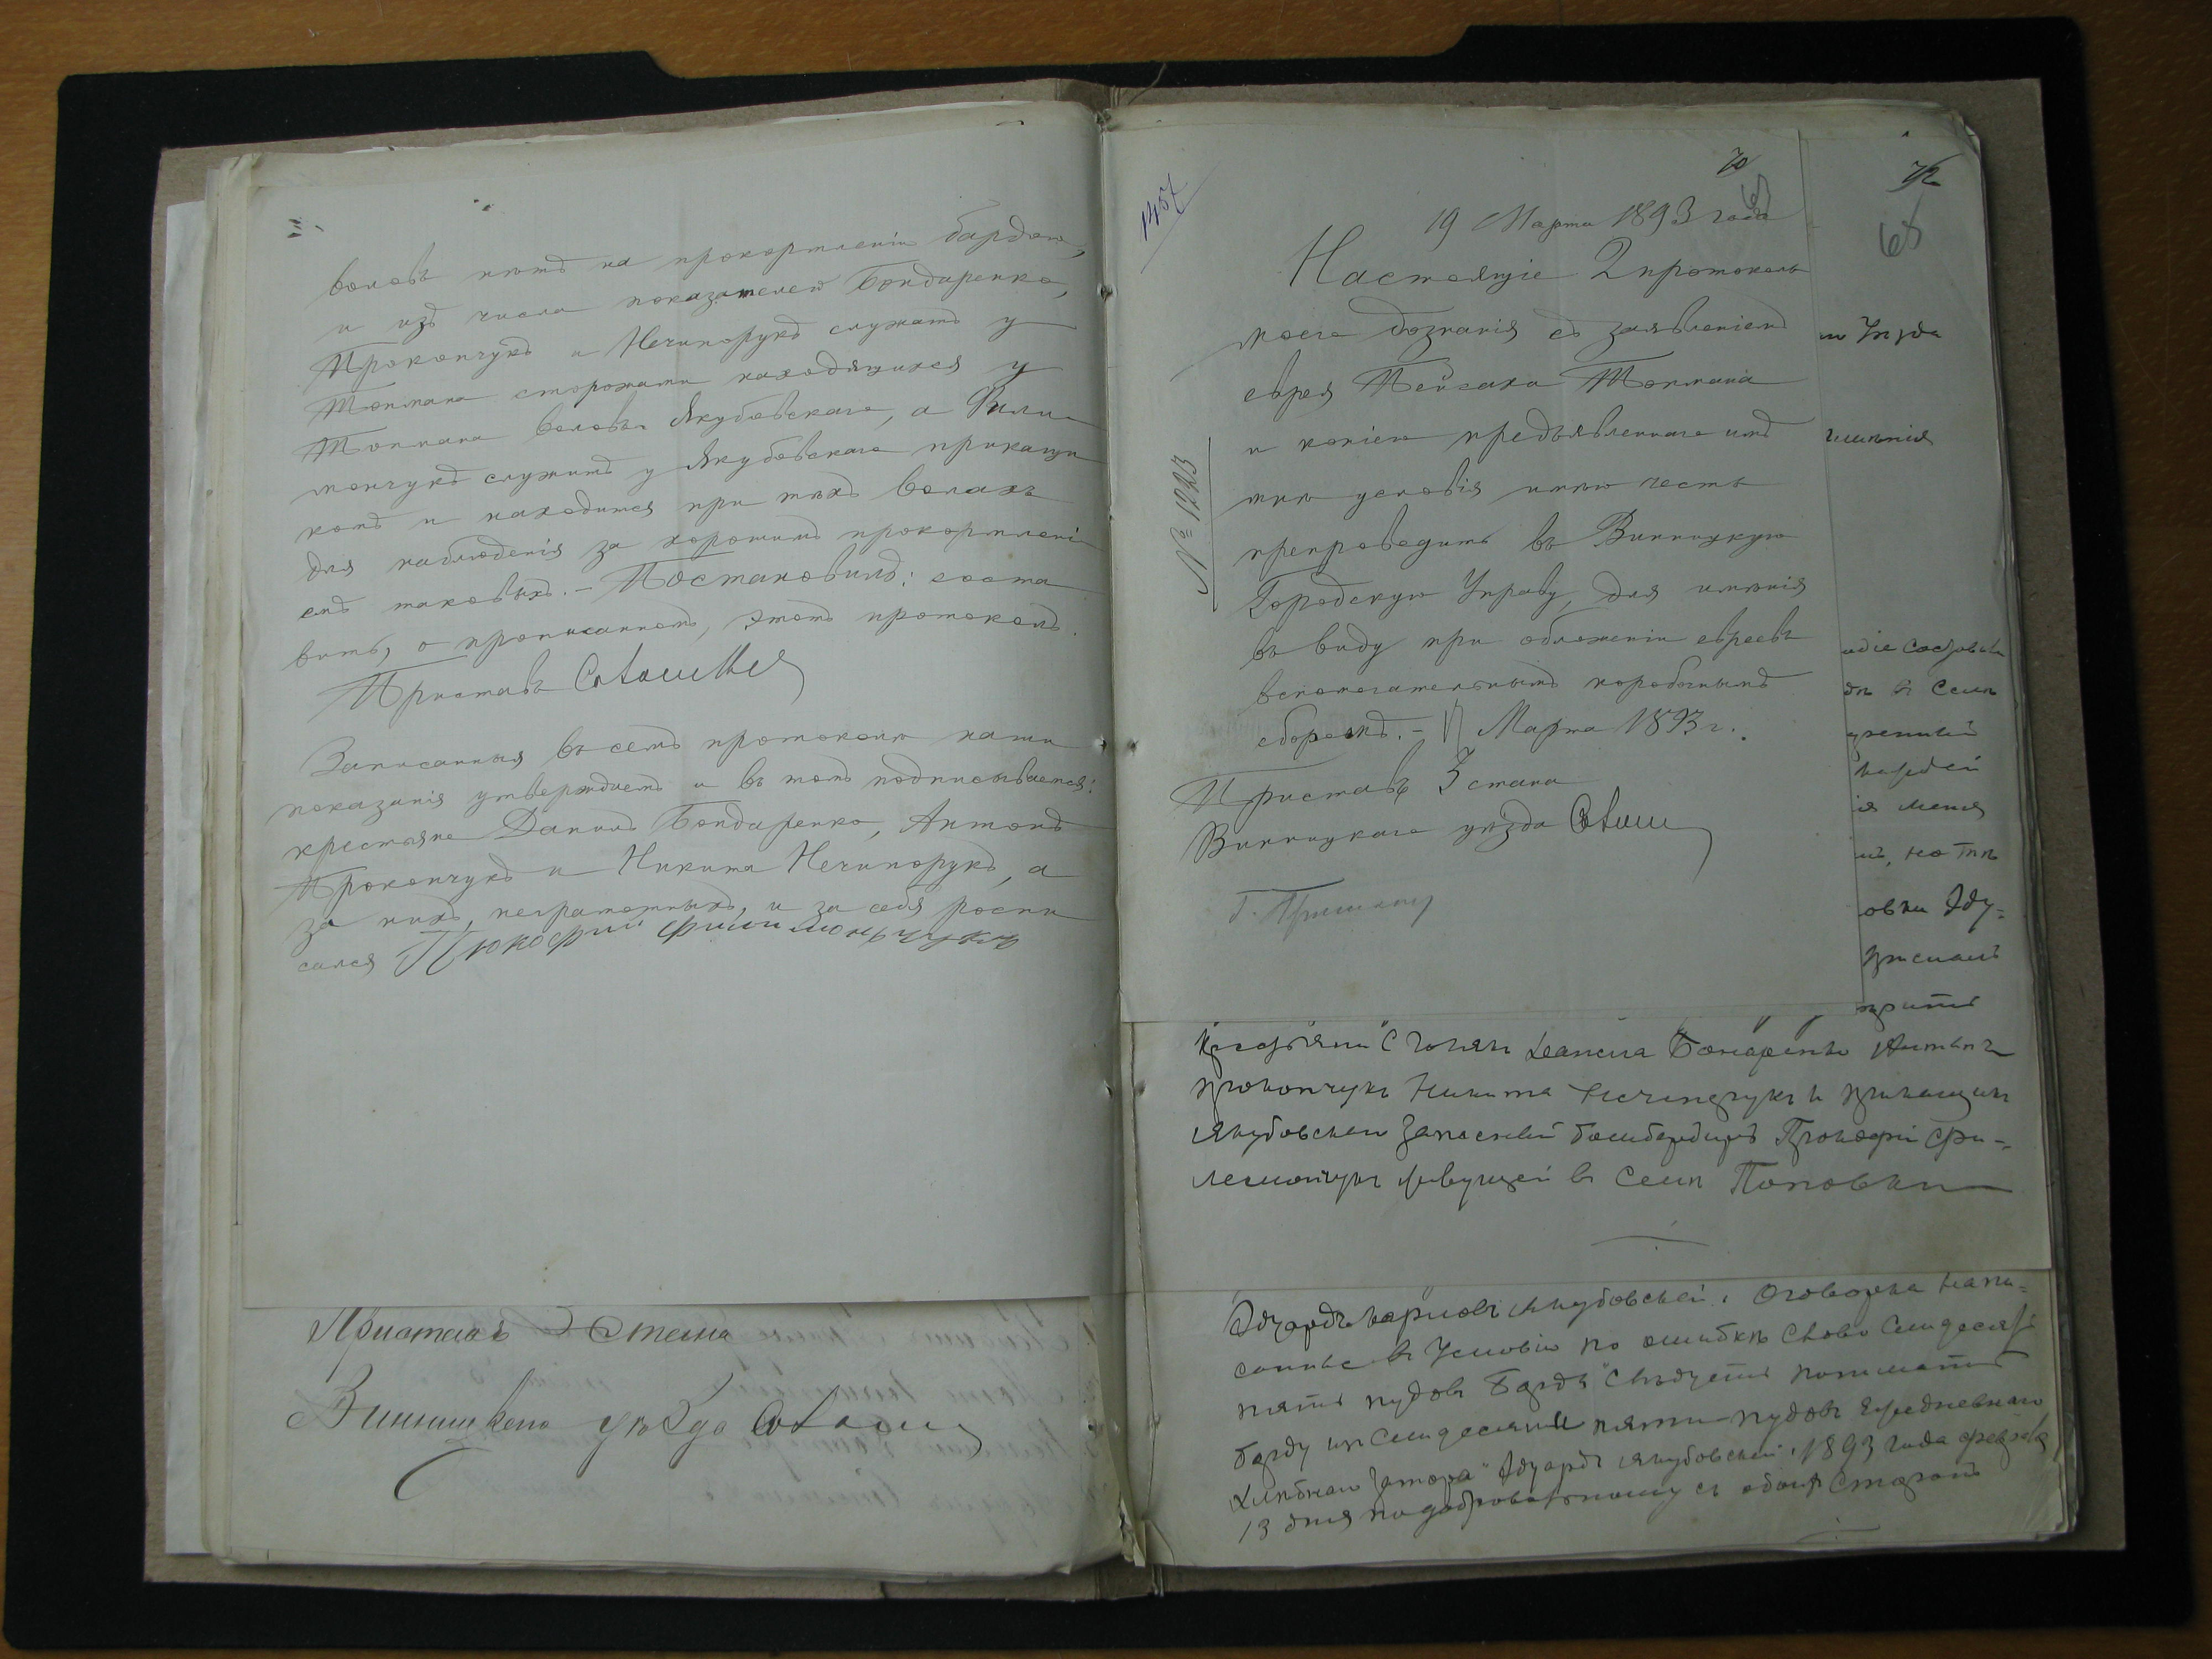 воловъ нѣтъ на прокормленіи бардою,
и изъ числа показателей Бондаренко,
Прокопчукъ и Нечипорукъ служатъ у
Топмана сторожами находящихся у
Топмана воловъ Якубовскаго, а Фили-
мончукъ служитъ у Якубовскаго прикащи
комъ и находится при тѣхъ волахъ
для наблюденія за хорошимъ прокормлені
емъ таковыхъ. – Постановилъ: соста
вить, о прописанномъ, этотъ протоколъ.
Приставъ
Записанныя въ семъ протоколѣ наши
показанія утверждаемъ и въ томъ подписываемся:
крестьяне Данилъ Бондаренко, Антонъ
Прокопчукъ и Никита Нечипорукъ, а
за нихъ, неграмотныхъ, и за себя распи
сался Прокофий Филимончукъ
Приставъ 3 Стана
Винницкаго уѣзда
1457
70
65
19 Марта 1893 года
Настоящіе 2 протокола
моего дознанія съ заявленіемъ
еврея Пейсаха Топмана
и копіею предъявленнаго имъ
мнѣ условія имѣю честь
препроводить въ Винницкую
Городскую Управу, для имѣнія
въ виду при обложеніи евреевъ
вспомогательнымъ коробочнымъ
сборомъ. – 17 Марта 1893 г.
№ 1223
Приставъ 3 стана
Винницкаго уѣзда
72
68
уѣзда
овки Эду-
Крестьяни Данила Бондаренко Антонъ
Прокопчукъ Никита Нечипорукъ и прикащикъ
Якубовскаго запасный бомбардиръ Прокофій Фи-
лемончукъ живущей въ Селѣ Поповки
Эдуардъ Карловъ Якубовскей. Оговорка напи-
санные въ Условію по ошибкѣ слово Семдесятъ
пять пудовъ Барды слѣдуетъ понимать
барду изъ Семидесяти пяти пудовъ ежедневнаго
хлѣбнаго Затора" Эдуардъ Якубовскей. 1893 года февраля
13 дня по добровольному съ обоихъ Сторонъ